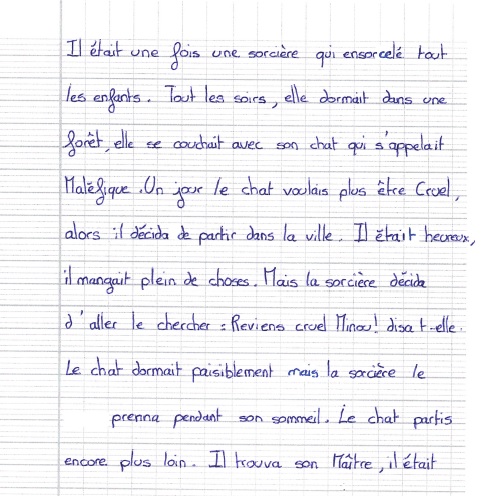 Il était une fois une sorcière qui ensorcelé tout
les enfants. Tout les soirs, elle dormait dans une
forêt, elle se couchait avec son chat qui s'appelait
Maléfique. Un jour le chat voulais plus être Cruel,
alors il décida de partir dans la ville. Il était heureux,
il mangait plein de choses. Mais la sorcière décida
d'aller le chercher : Reviens cruel Minou! disa t-elle.
Le chat dormait paisiblement mais la sorcière le
prenna pendant son sommeil. Le chat partis
encore plus loin. Il trouva son Maître, il était